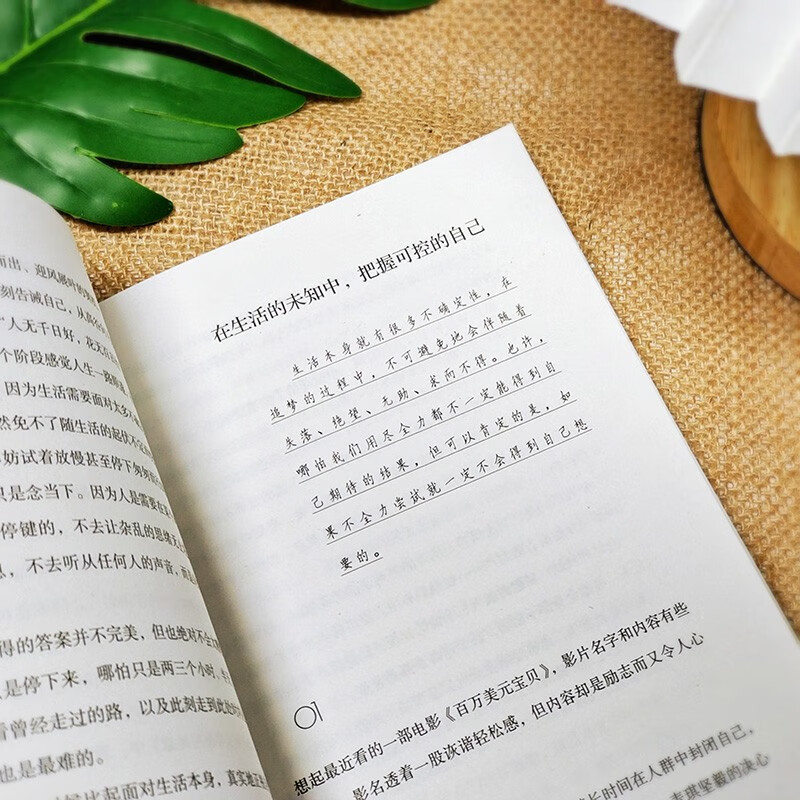 而出、迎风展叶的
刻告诫自己，从
“人无千日好，花无百
个阶段感觉人生一路
因为生活需要面对太多
然免不了随生活的起伏不
妨试着放慢甚至停下匆匆
只是念当下。因为人是需要在
停键的，不去让杂乱的思绪
，不去听从任何人的声音，而
得的答案并不完美，但也绝对不会
是停下来，哪怕只是两三个小时，
看曾经走过的路，以及此刻走到此处
也是最难的。
比起面对生活本身，真实地
在生活的未知中，把握可控的自己
生活本身就有很多不确定性，在
追梦的过程中，不可避免地会伴随着
失落、绝望、无助、求而不得。也许，
哪怕我们用尽全力都不一定能得到自
己期待的结果，但可以肯定的是，如
果不全力尝试就一定不会得到自己想
要的。
01
想起最近看的一部电影《百万美元宝贝》，影片名字和内容有些
影名透着一股诙谐轻松感，但内容却是励志而又令人心
长时间在人群中封闭自己，
志琪坚毅的决心